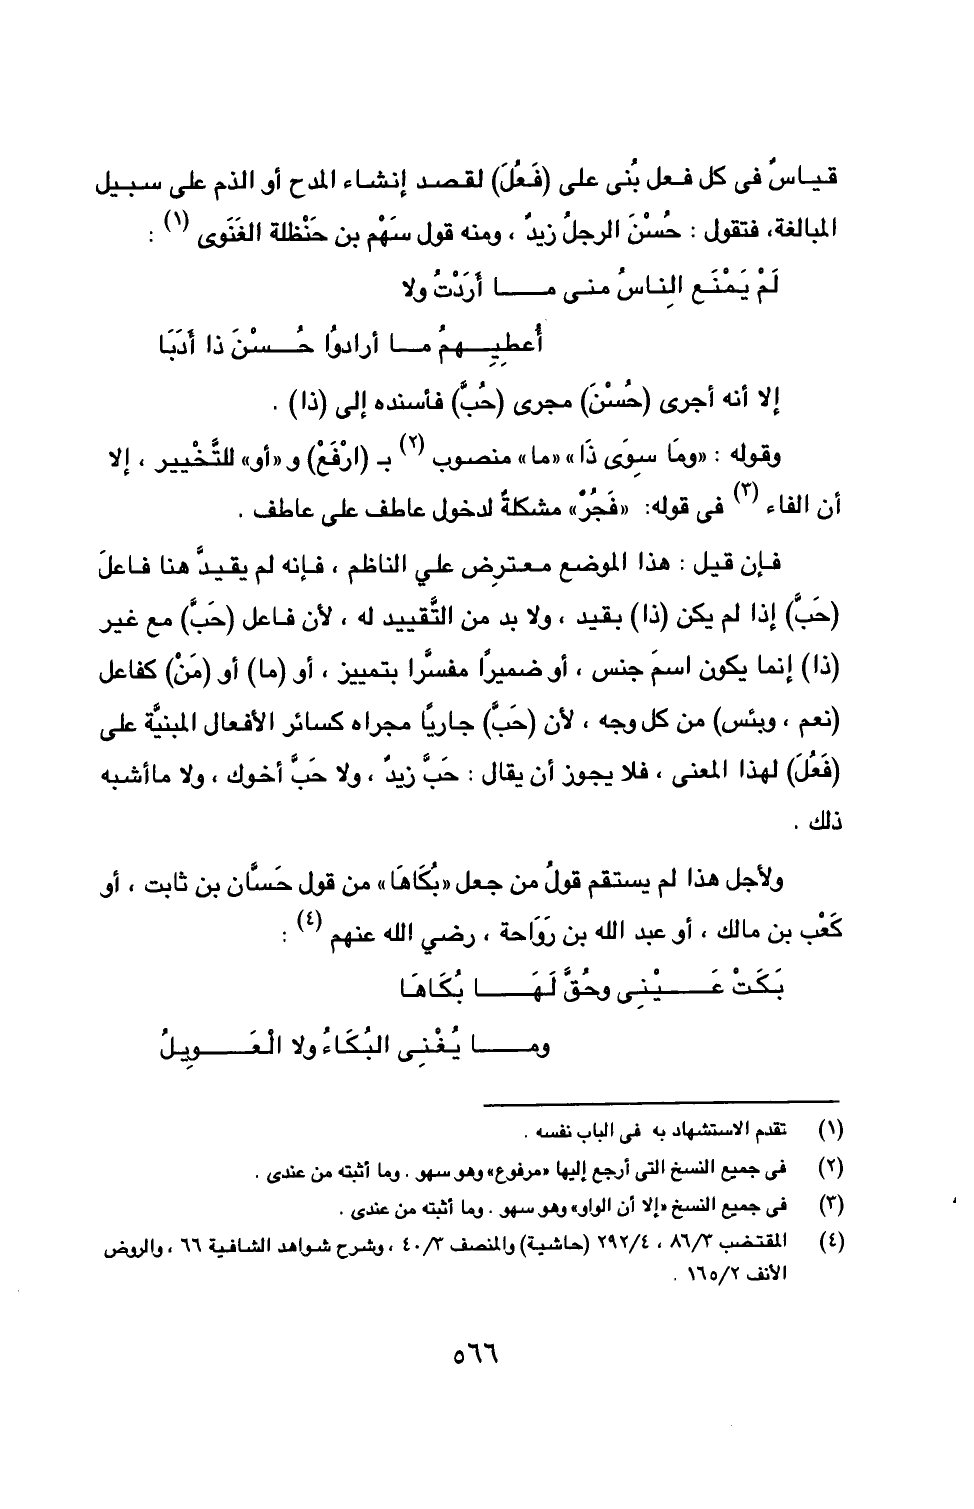 قياسٌ فى كل فعل بُنى على (فَعُلَ) لقصد إنشاء المدح أو الذم على سبيل
المبالغة، فتقول : حُسْنَ الرجلُ زيدٌ ، ومنه قول سَهْم بن حَنْظلة الغَنَوى (١) :
لَمْ يَمْنَعِ الناسُ منى مــا أَرَدْتُ ولا
أُعطِيهِمُ مــا أرادوُا حُسْنَ ذا أَدَبَا
إلا أنه أجرى (حُسْنَ) مجرى (حُبَّ) فأسنده إلى (ذا) .
وقوله : «ومَا سِوَى ذَا» «ما» منصوب (٢) بـ (ارْفَعْ) و «أو» للتَّخْيير ، إلا
أن الفاء (٣) فى قوله: «فَجُرّ» مشكلةٌ لدخول عاطف على عاطف .
فإن قيل : هذا الموضع معترض علي الناظم ، فإنه لم يقيدّ هنا فاعلَ
(حَبَّ) إذا لم يكن (ذا) بقيد ، ولا بد من التَّقييد له ، لأن فاعل (حَبَّ) مع غير
(ذا) إنما يكون اسمَ جنس ، أو ضميرًا مفسَّرا بتمييز ، أو (ما) أو (مَنْ) كفاعل
(نعم ، وبئس) من كل وجه ، لأن (حَبَّ) جاريًا مجراه كسائر الأفعال المبنيَّة على
(فَعُلَ) لهذا المعنى ، فلا يجوز أن يقال : حَبَّ زيدٌ ، ولا حَبَّ أخوك ، ولا ماأشبه
ذلك .
ولأجل هذا لم يستقم قولُ من جعل «بُكَاهَا» من قول حَسَّان بن ثابت ، أو
كَعْب بن مالك ، أو عبد الله بن رَوَاحة ، رضي الله عنهم (٤) :
بَكَتْ عَــيْنِى وحُقَّ لَهَــا بُكَاهَا
ومــا يُغْنِى البُكَاءُ ولا الْعَــوِيلُ
(١) تقدم الاستشهاد به فى الباب نفسه .
(٢) فى جميع النسخ التى أرجع إليها «مرفوع» وهو سهو . وما أثبته من عندى .
(٣) فى جميع النسخ «إلا أن الواو» وهو سهو . وما أثبته من عندى .
(٤) المقتضب ٨٦/٣ ، ٢٩٢/٤ (حاشية) والمنصف ٤٠/٣ ، وشرح شواهد الشافية ٦٦ ، والروض
الأنف ١٦٥/٢ .
٥٦٦